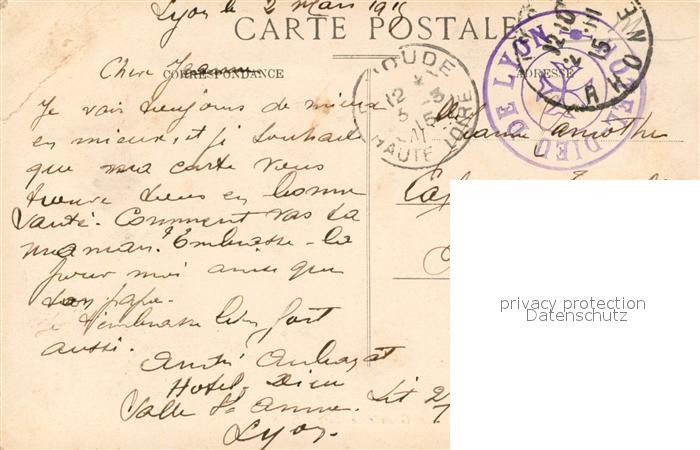 Lyon le 2 Mars 1915
CARTE POSTALE
Chère Jeanne
CORRESPONDANCE
ADRESSE
Je vais toujours de mieux
en mieux, et je souhaite
que ma carte vous
trouve tous en bonne
santé. Comment vas ta
maman? Embrasse-la
pour moi ainsi que
ton papa.
Je t'embrasse bien fort
aussi.
André
Hotel-Dieu
Salle Ste Anne. Lit 2
Lyon.
Jeanne
BRIOUDE
12 3
5 15
HAUTE LOIRE
HOTEL-DIEU DE LYON
RHONE
privacy protection
Datenschutz